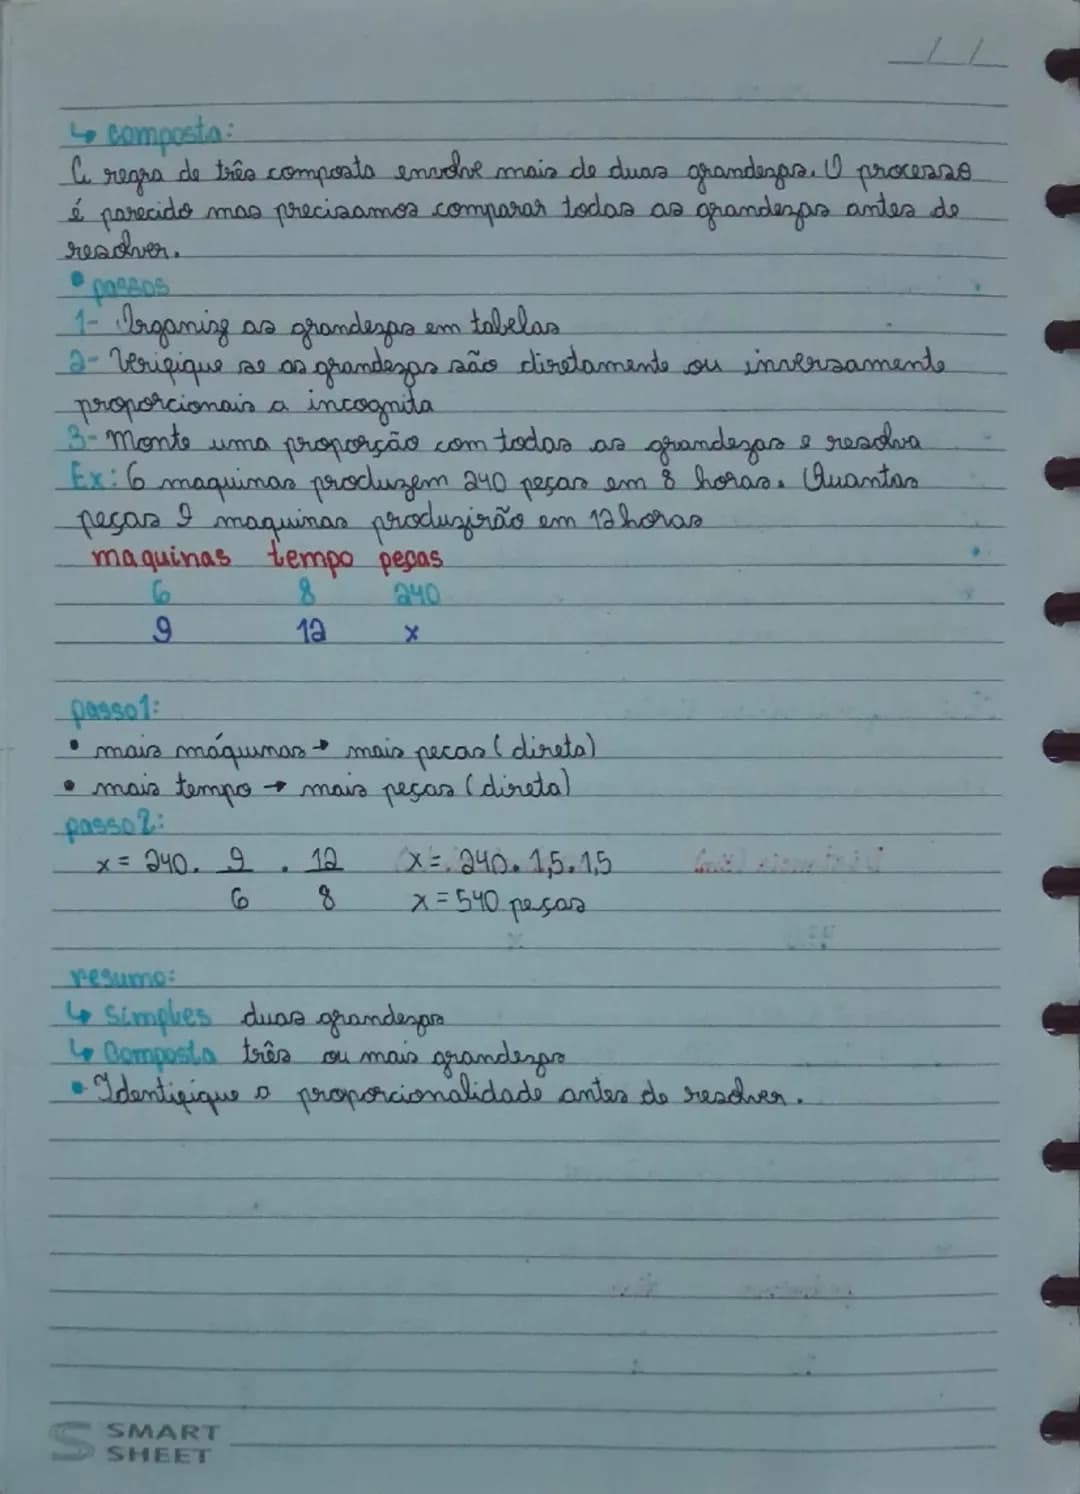 ↳ composta:
A regra de três composta envolve mais de duas grandezas. O processo
é parecido mas precisamos comparar todas as grandezas antes de
resolver.
• passos
1- Organize as grandezas em tabelas
2- Verifique se as grandezas são diretamente ou inversamente
proporcionais a incognita
3- Monte uma proporção com todas as grandezas e resolva
Ex: 6 maquinas produzem 240 peças em 8 horas. Quantas
peças 9 maquinas produzirão em 12 horas
maquinas tempo peças
6 8 240
9 12 x
passo1:
• mais máquinas → mais pecas (direta)
• mais tempo → mais peças (direta)
passo2:
x = 240 . 9/6 . 12/8 x = 240 . 1,5 . 1,5
x = 540 peças
resumo:
↳ Simples duas grandezas
↳ Composta três ou mais grandezas
• Identifique a proporcionalidade antes de resolver.
SMART
SHEET